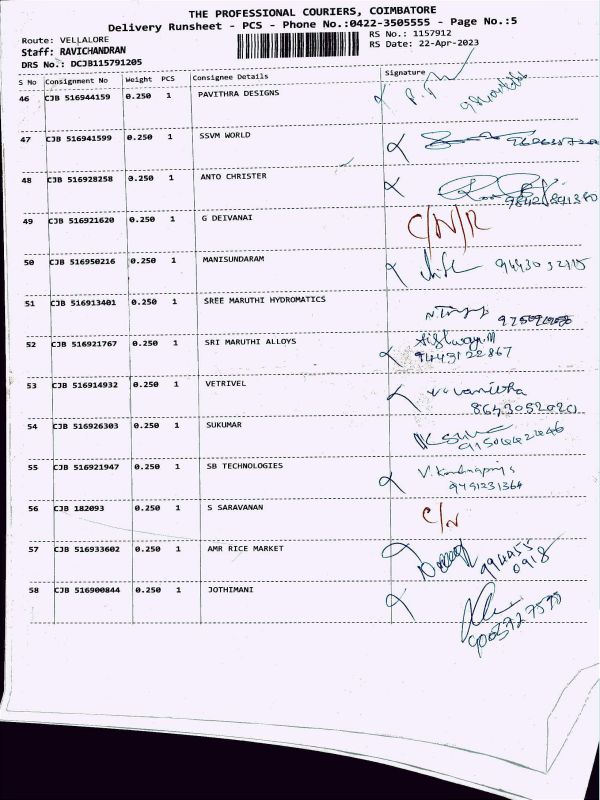 THE PROFESSIONAL COURIERS, COIMBATORE
Delivery Runsheet - PCS - Phone No.:0422-3505555 - Page No.:5
Route: VELLALORE RS No.: 1157912
Staff: RAVICHANDRAN RS Date: 22-Apr-2023
DRS No.: DCJB115791205
S No Consignment No Weight PCS Consignee Details Signature
46 CJB 516944159 0.250 1 PAVITHRA DESIGNS
47 CJB 516941599 0.250 1 SSVM WORLD
48 CJB 516928258 0.250 1 ANTO CHRISTER
49 CJB 516921620 0.250 1 G DEIVANAI C/N/R
50 CJB 516950216 0.250 1 MANISUNDARAM
51 CJB 516913401 0.250 1 SREE MARUTHI HYDROMATICS
52 CJB 516921767 0.250 1 SRI MARUTHI ALLOYS
53 CJB 516914932 0.250 1 VETRIVEL
8643052020
54 CJB 516926303 0.250 1 SUKUMAR
55 CJB 516921947 0.250 1 SB TECHNOLOGIES
9491231364
56 CJB 182093 0.250 1 S SARAVANAN C/N
57 CJB 516933602 0.250 1 AMR RICE MARKET
58 CJB 516900844 0.250 1 JOTHIMANI